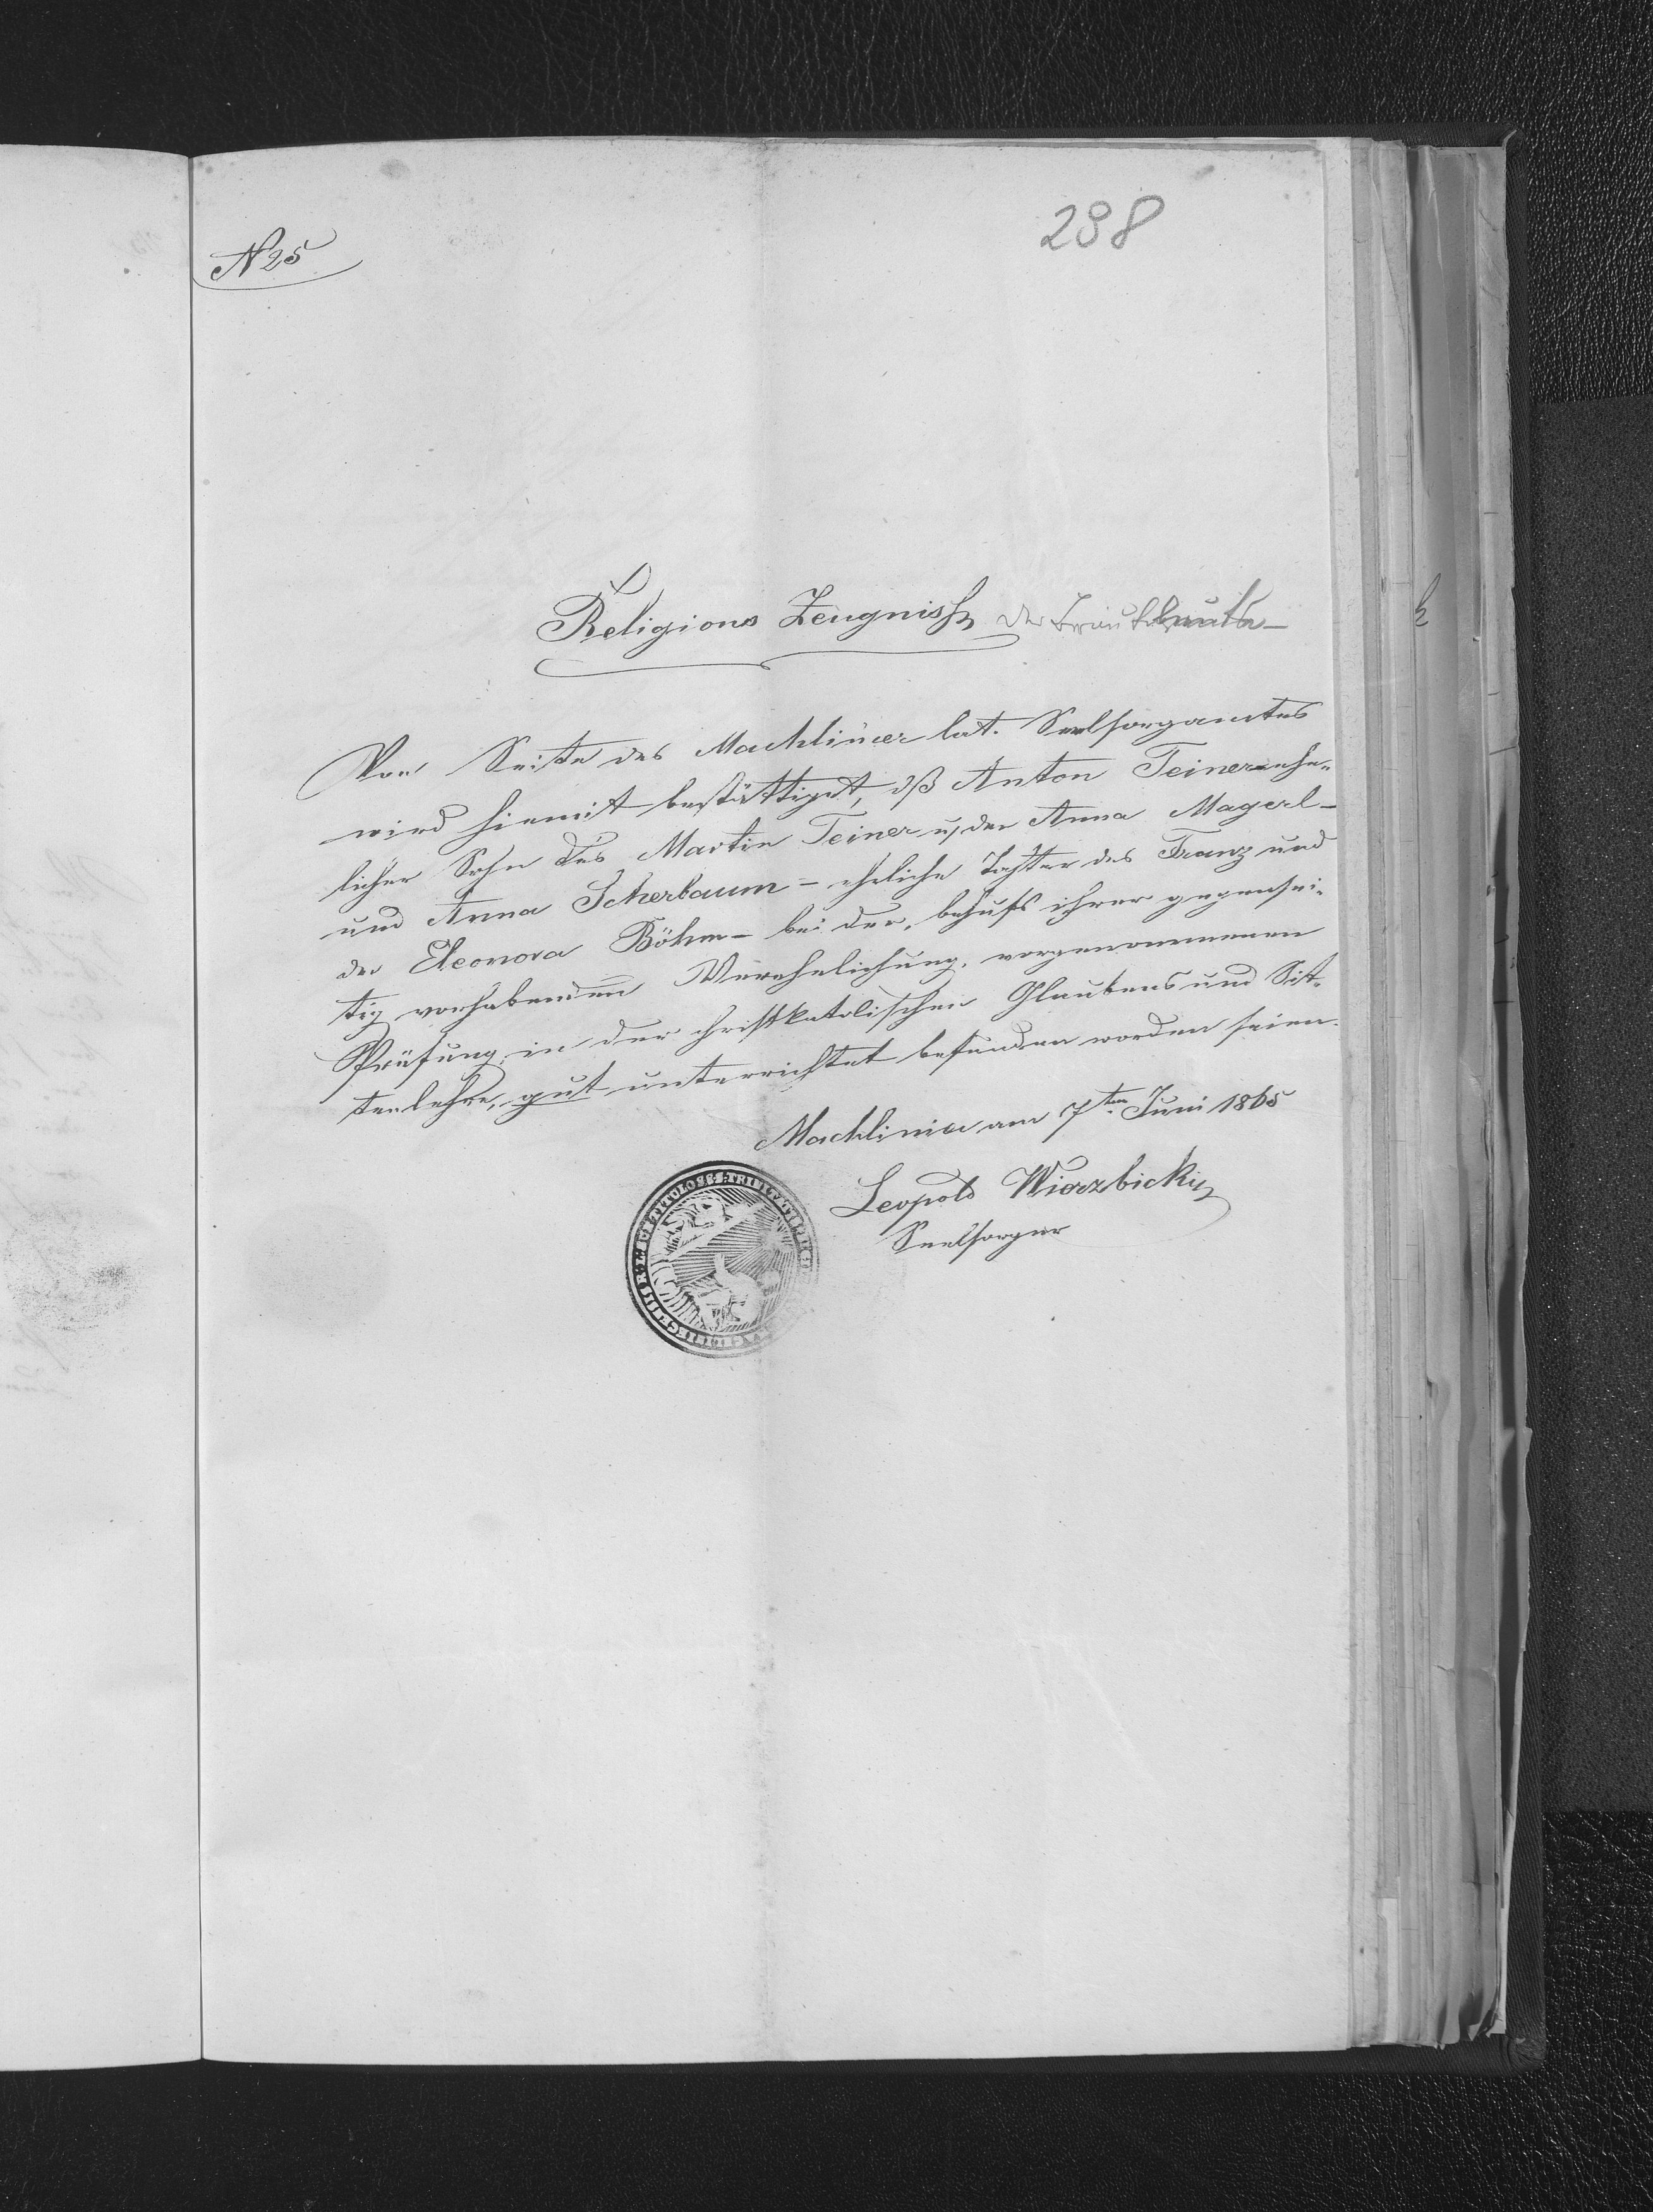 N 25
298
Religions Zeugniss der Brautleute
Von Seite des Machliniecer lat. Seelsorgamtes
wird hiemit bestättiget, dß Anton Teiner ehe-
licher Sohn des Martin Teiner u. der Anna Magerl -
und Anna Scherbaum - eheliche Tochter des Franz und
der Eleonora Böhm - bei der, behufs ihrer gegensei-
tig vorhabenden Verehelichung, vorgenommenen
Prüfung, in der christkatolischen Glaubens und Sit-
tenlehre, gut unterrichtet befunden worden seien.
Machliniec am 7ten Juni 1865
Leopold Wierzbicky
Seelsorger